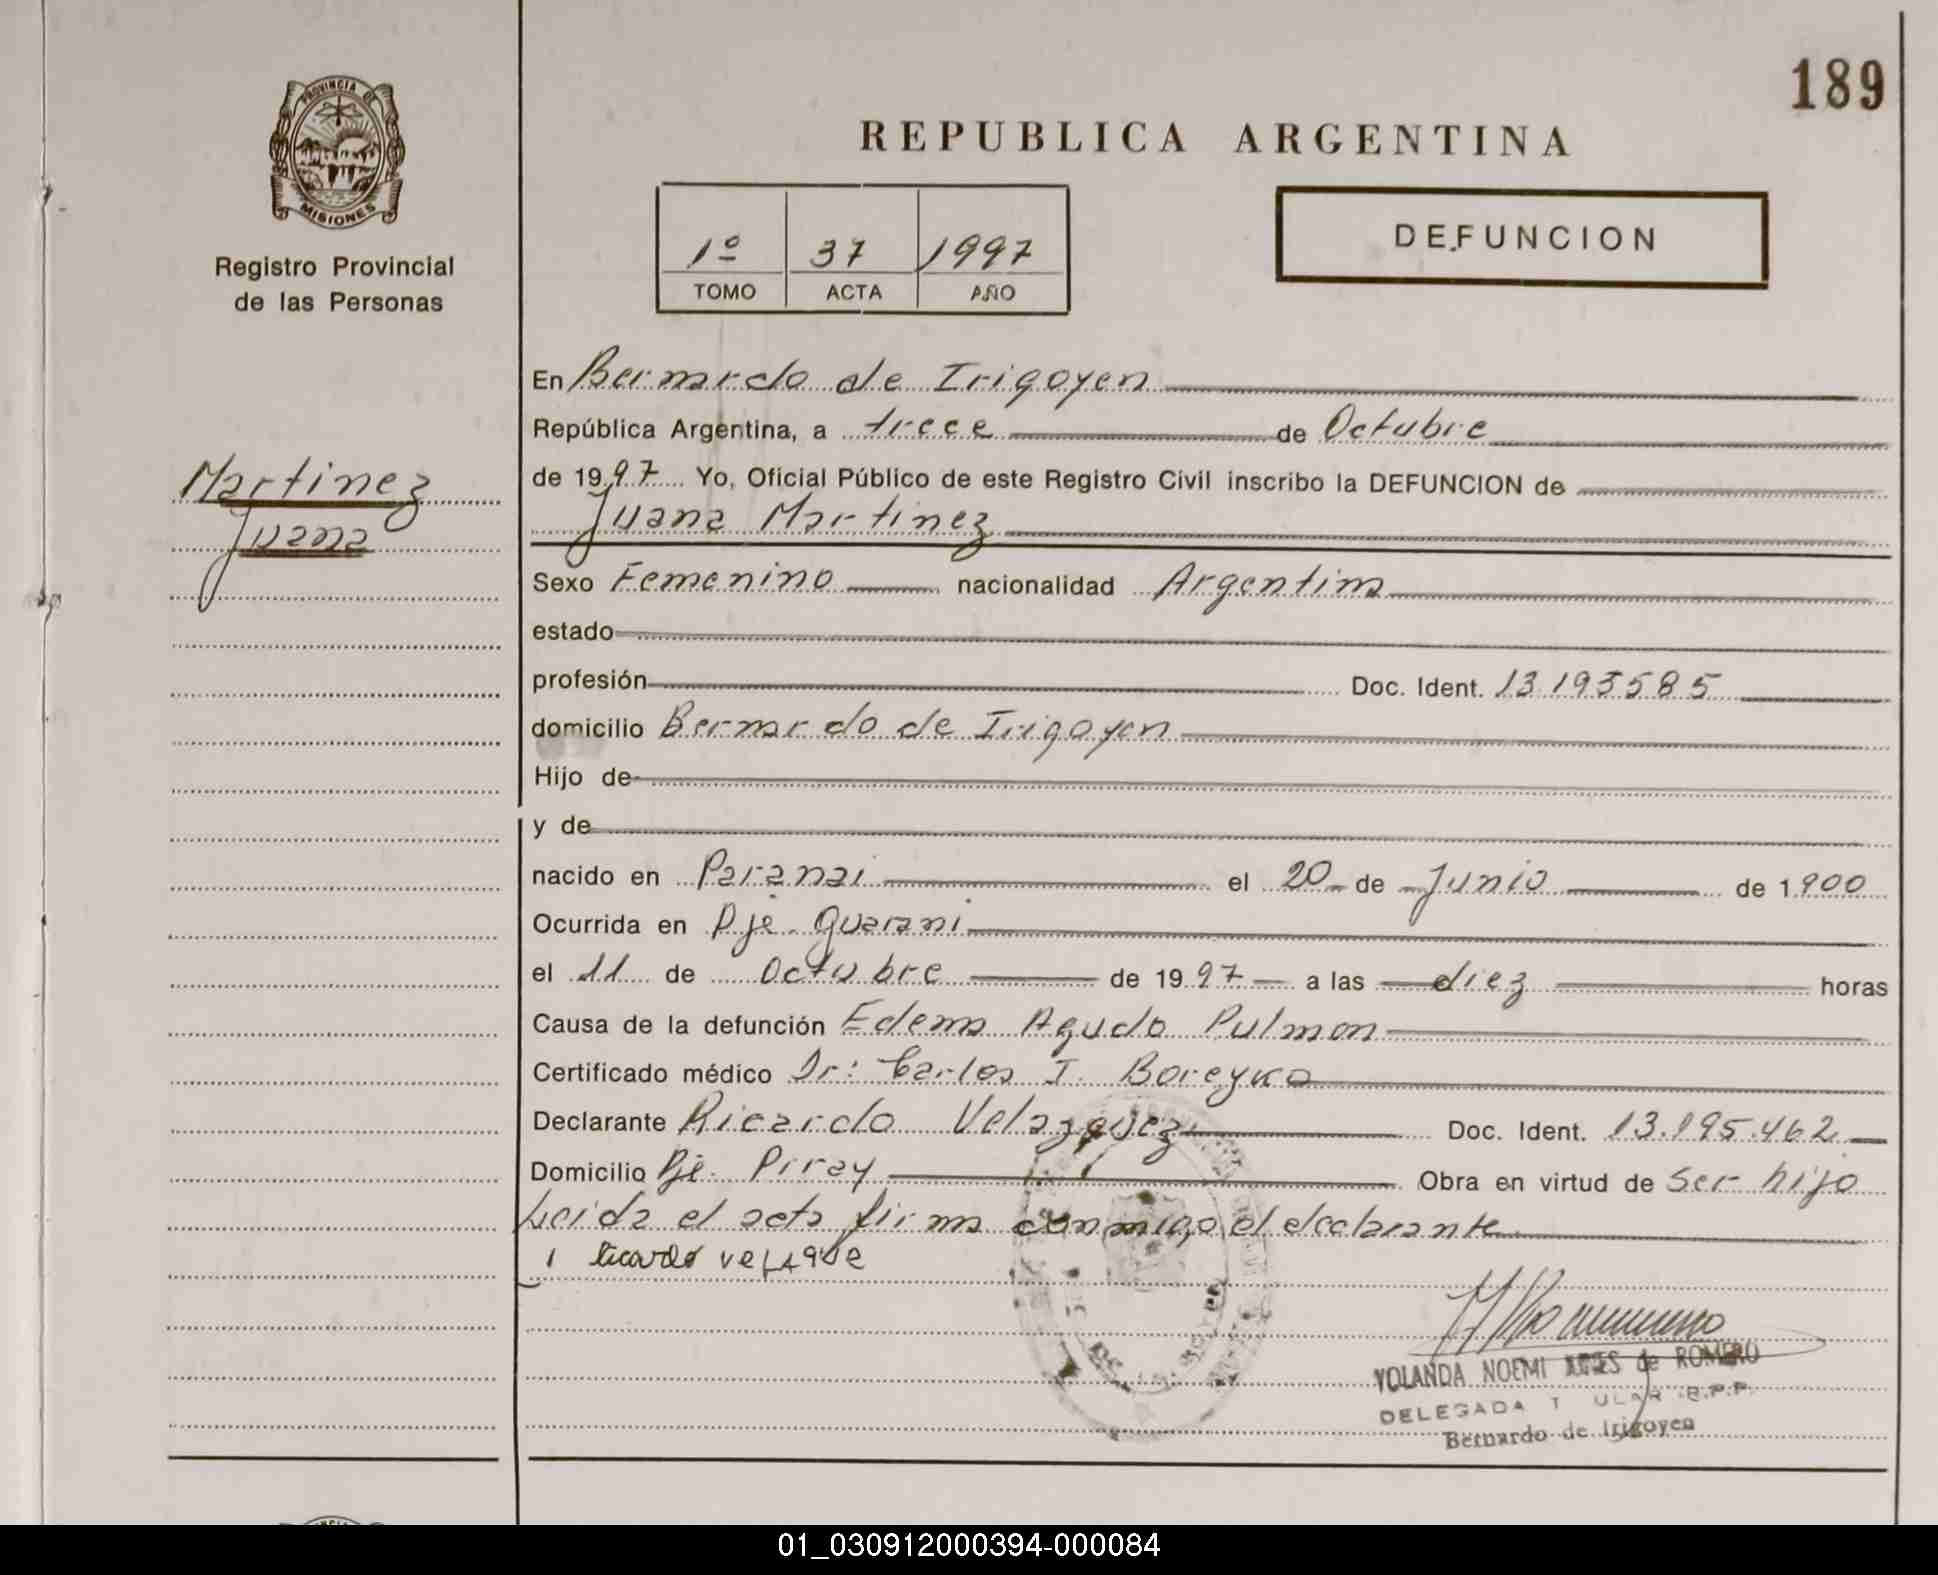 189
PROVINCIA DE
MISIONES
Registro Provincial
de las Personas
REPUBLICA ARGENTINA
1º 37 1997
TOMO ACTA AÑO
DEFUNCION
Martinez
Juana
En Bernardo de Irigoyen
República Argentina, a trece de Octubre
de 1997 Yo, Oficial Público de este Registro Civil inscribo la DEFUNCION de
Juana Martinez
Sexo Femenino nacionalidad Argentina
estado
profesión Doc. Ident. 13.193585
domicilio Bernardo de Irigoyen
Hijo de
y de
nacido en Paranai el 20 de Junio de 1.900
Ocurrida en Pje. Guarani
el 11 de Octubre de 1997 a las diez horas
Causa de la defunción Edema Agudo Pulmon
Certificado médico Dr: Carlos I. Boreyko
Declarante Ricardo Velazquez Doc. Ident. 13.195.462
Domicilio Pje. Piray Obra en virtud de ser hijo
Leida el acta firma conmigo el declarante
YOLANDA NOEMI de ROMERO
DELEGADA R.P.P.
Bernardo de Irigoyen
01_030912000394-000084